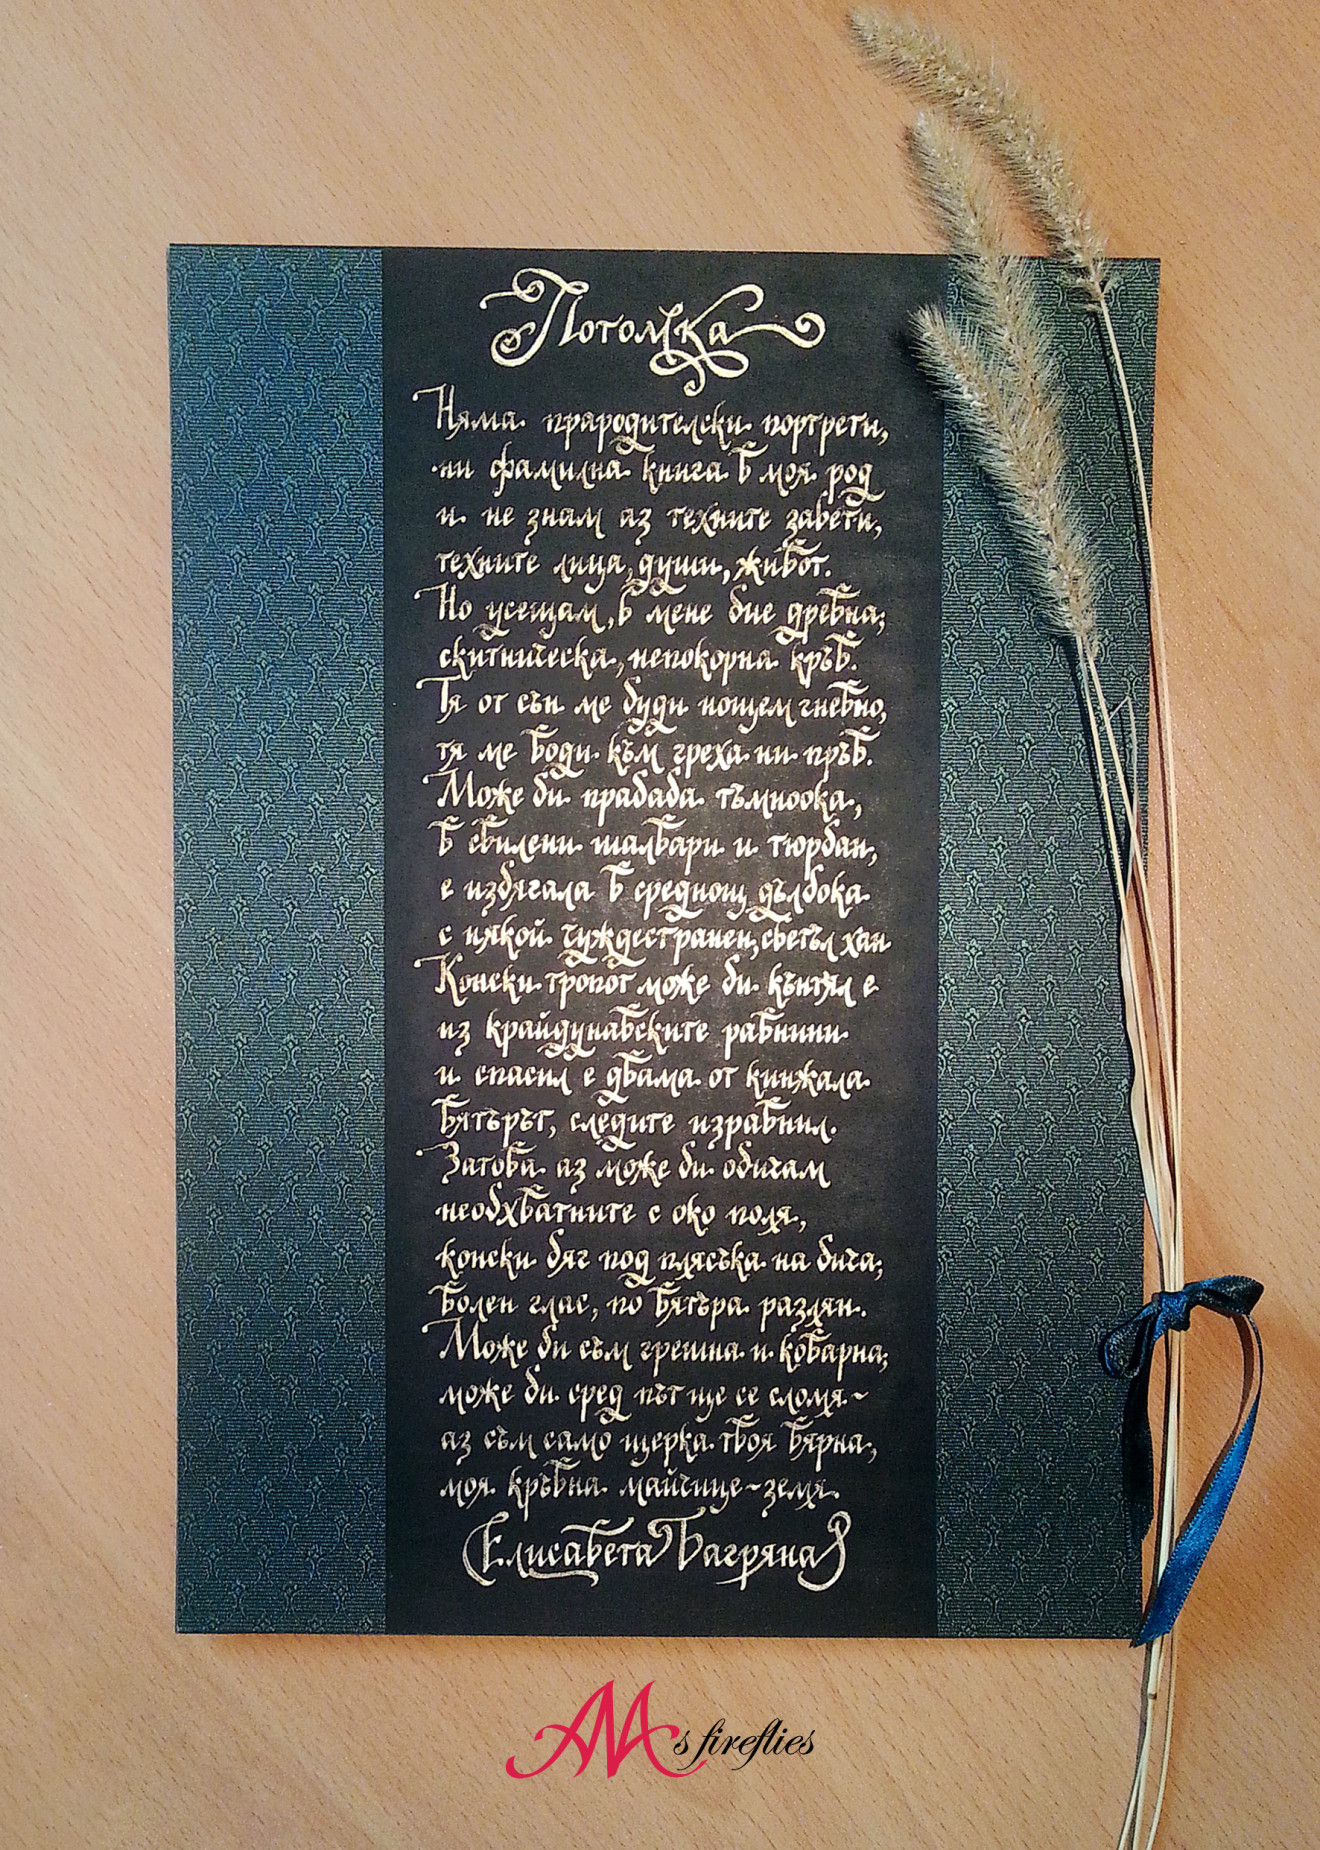 Потомка
Няма прародителски портрети,
ни фамилна книга в моя род
и не знам аз техните завети,
техните лица, души, живот.
Но усещам, в мене бие древна,
скитническа, непокорна кръв.
Тя от сън ме буди нощем гневно,
тя ме води към греха ни пръв.
Може би прабаба тъмноока,
в свилени шалвари и тюрбан,
е избягала в среднощ дълбока
с някой чуждестранен, светъл хан
Конски тропот може би кънтял е
из крайдунавските равнини
и спасил е двама от кинжала
вятърът, следите изравнил.
Затова аз може би обичам
необхватните с око поля,
конски бяг под плясъка на бича,
волен глас, по вятъра разлян.
Може би съм грешна и коварна,
може би сред път ще се сломя -
аз съм само щерка твоя вярна,
моя кръвна майчице - земя.
Елисавета Багряна
AAA's fireflies